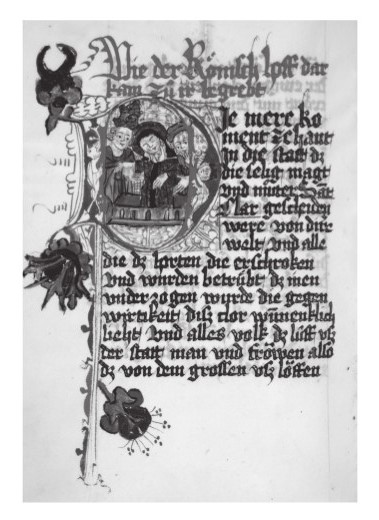 Wie der Römisch hoff dar
kam zů ir begrebt
Je mere ko
ment zehant
in die statt dz
die selig magt
vnd můter Sāt
Clar gescheiden
were von dirr
welt vnd alle
die dz horten die erschroken
vnd wurden betrůbt dz men
vnder zogen wurde die gegen
wirtikeit disz clor wūnenklich
lieht vnd alles volk dz lüff vsz
der statt man vnd fröwen also
dz von dem grossen vsz löffen